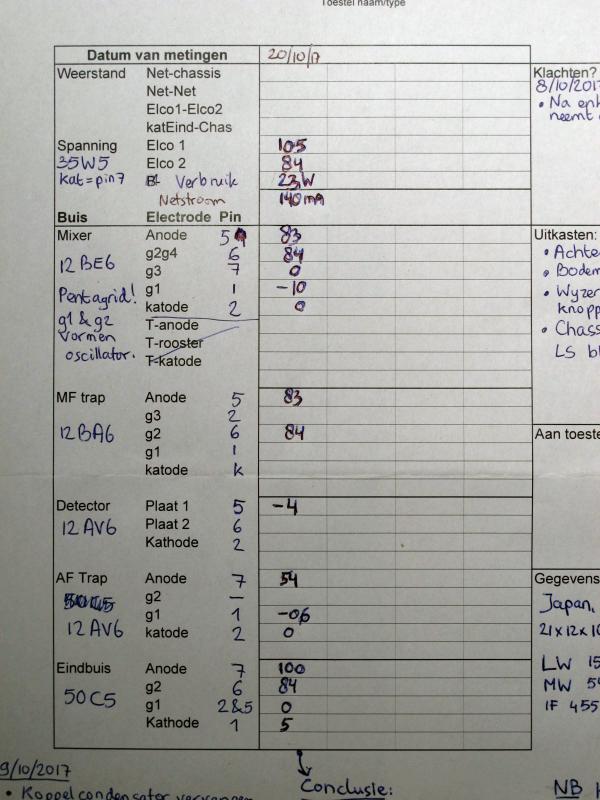 Toestel naam/type
Datum van metingen 20/10/17
Weerstand Net-chassis
Net-Net
Elco1-Elco2
katEind-Chas
Spanning Elco 1 105
35W5 Elco 2 84
Kat=pin7 Verbruik 23W
Netstroom 140mA
Buis Electrode Pin
Mixer Anode 5 83
12BE6 g2g4 6 84
g3 7 0
Pentagrid! g1 1 -10
g1 & g2 katode 2 0
vormen T-anode
oscillator. T-rooster
T-katode
MF trap Anode 5 83
g3 2
12BA6 g2 6 84
g1 1
katode K
Detector Plaat 1 5 -4
12AV6 Plaat 2 6
Kathode 2
AF Trap Anode 7 54
g2 —
g1 1 -0,6
12AV6 katode 2 0
Eindbuis Anode 7 100
50C5 g2 6 84
g1 2&5 0
Kathode 1 5
Klachten?
8/10/2017
• Na
neemt
Uitkasten:
•
•
• Wyzer
•
LS
Aan
Japan,
21x12x
LW
MW
IF 455
9/10/2017
• Koppelcondensator vervangen
Conclusie:
NB